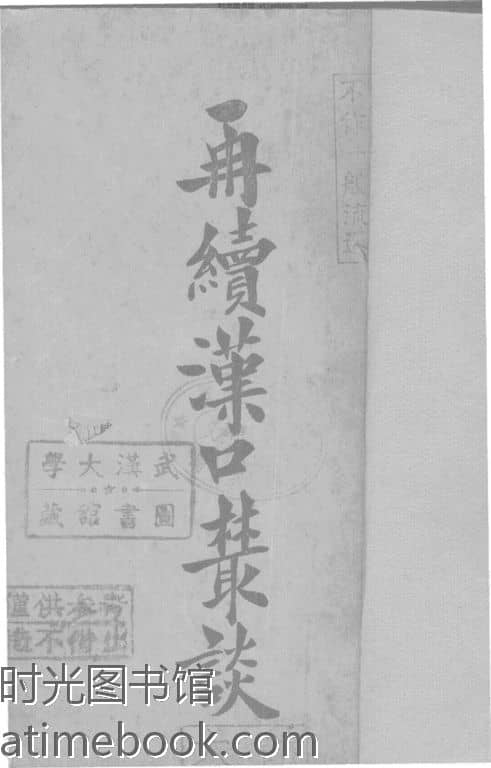 再續漢口叢談
不作一般流通
武漢大學
圖書館藏
僅供參考
概不借出
时光图书馆
atimebook.com